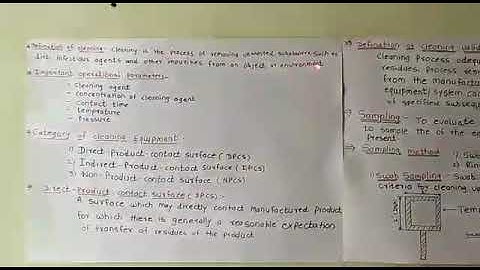 Defination of cleaning: Cleaning is the process of removing unwanted substances, such as
dirt, infectious agents and other impurities from an object or environment
Important operational parameters:-
- Cleaning agent
- concentration of cleaning agent
- Contact time
- temperature
- Pressure
Category of cleaning Equipment:-
1) Direct Product contact surface (DPCS)
2) Indirect-Product contact surface (IPCS)
3) Non-Product contact surface (NPCS)
Direct-Product contact surface (DPCS):-
A surface which may directly contact manufactured product
for which there is generally a reasonable expectation
of transfer of residues of the product
Defination of cleaning
cleaning Process
residues. Process
from the
equipment/system
of specified
Sampling:- To evaluate
to sample the of the
Present
Sampling method
1)
2)
Swab Sampling:- Swab
criteria for cleaning